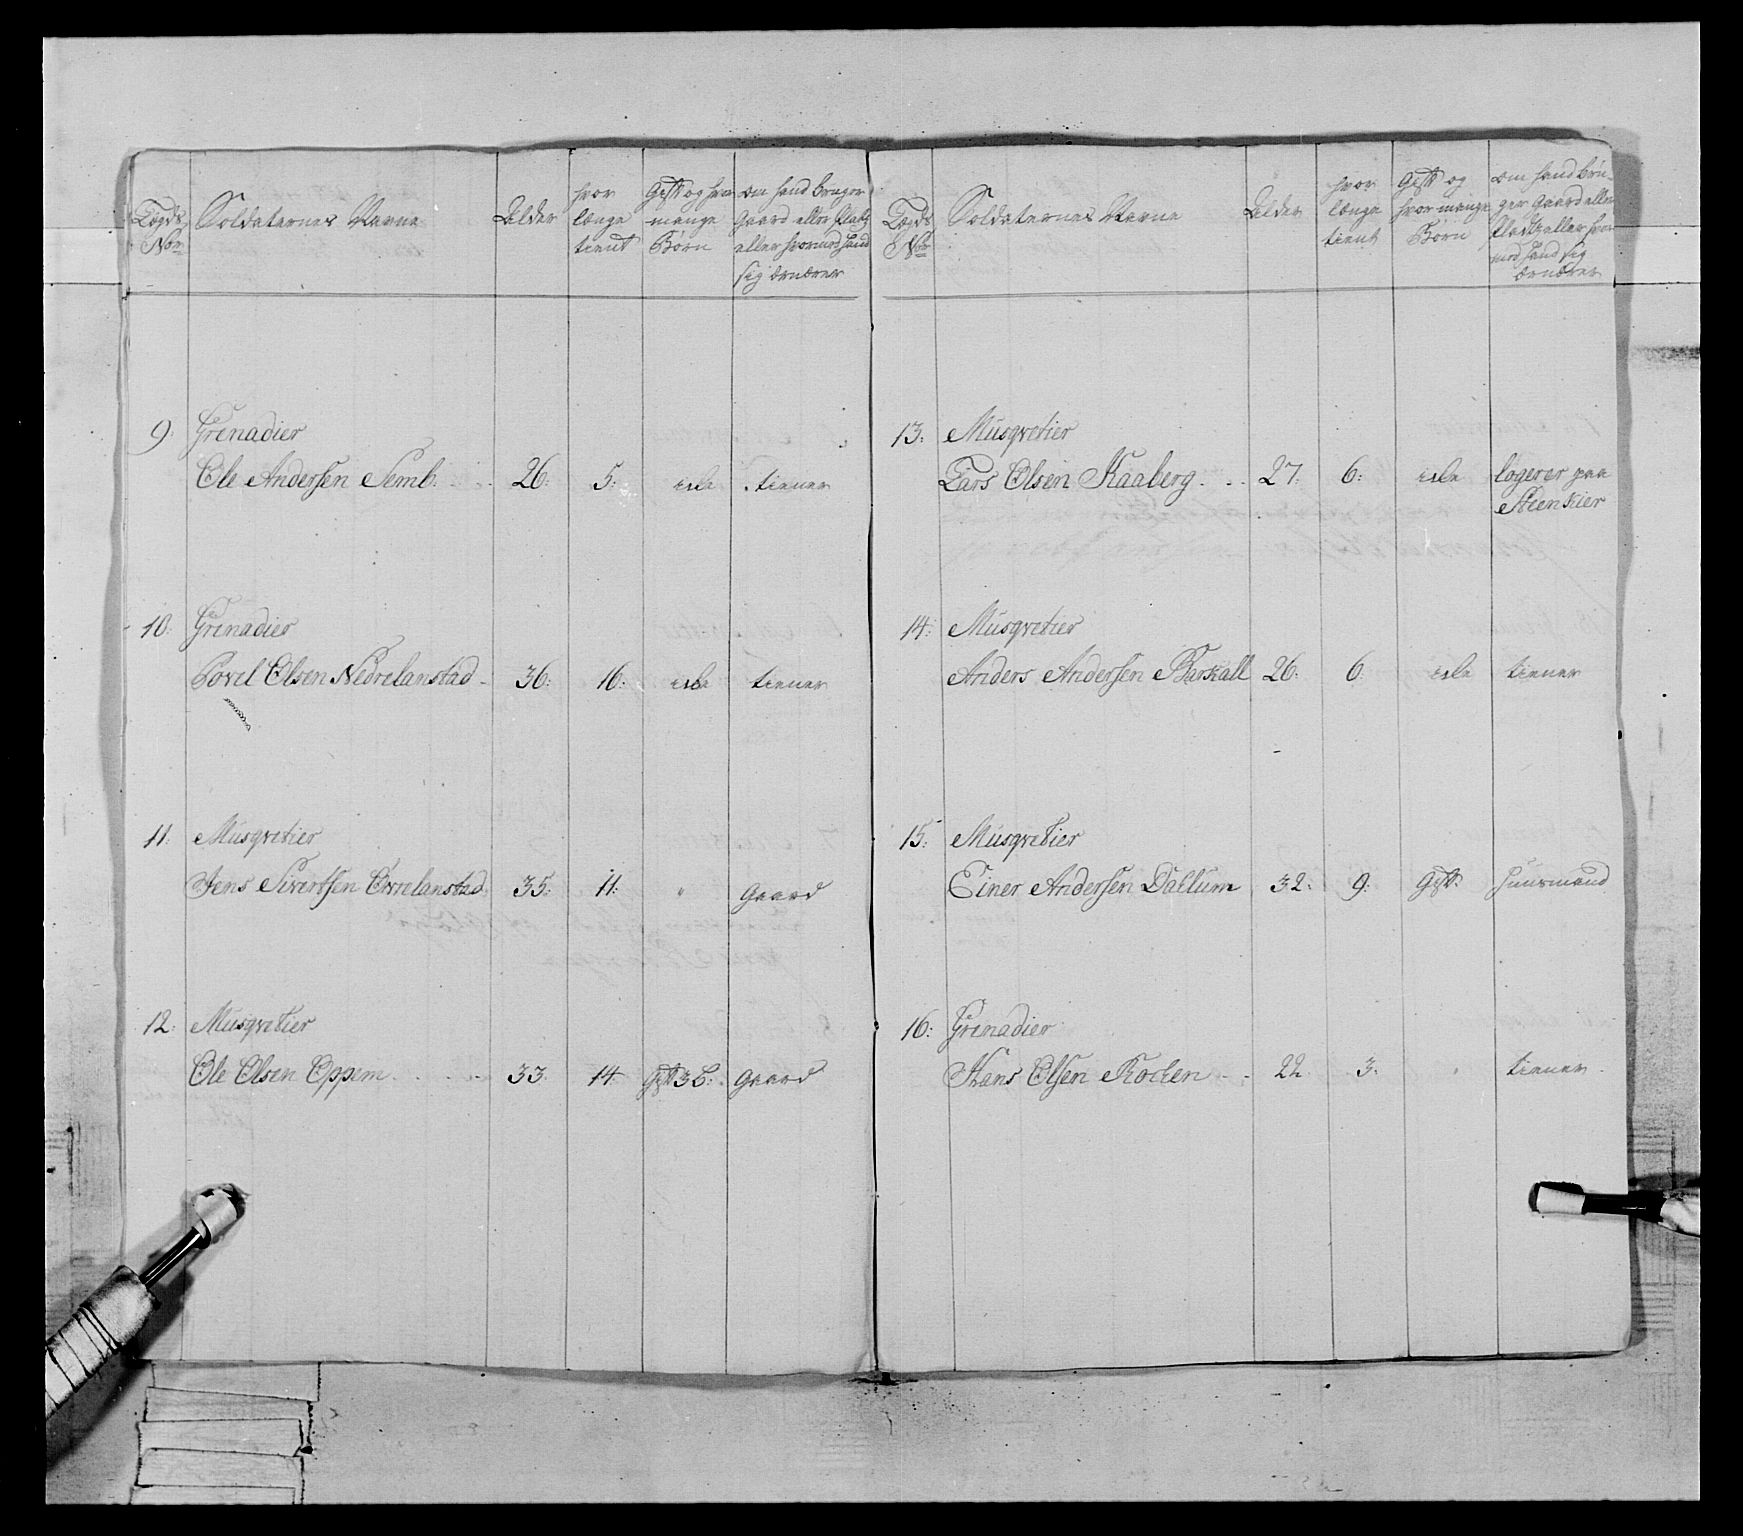 Lægds No
Soldaternes Navne
Alder
hvor længe tient
Gift og hvor mange Børn
om hand bruger Gaard eller Platz eller hvormed hand sig ernærer
9. Grenadier
Ole Andersen Semb. 26. 5. icke tiener
10. Grenadier
Povel Olsen Nedrelanstad 36. 16. icke tiener
11. Musqvetier
Jens Sivertsen Øvrelanstad 35. 11. " Gaard
12. Musqvetier
Ole Olsen Oppem 33. 14. Gift 3 b. Gaard
Lægds No
Soldaternes Navne
Alder
hvor længe tient
Gift og hvor mange Børn
om hand bruger Gaard eller Pladtz eller hvormed hand sig ernærer
13. Musqvetier
Lars Olsen Kaaberg 27. 6. icke logerer paa
Steenkier
14. Musqvetier
Anders Andersen 26. 6. icke tiener
15. Musqvetier
Einer Andersen Dallum 32. 9. Gift. Huusmand
16. Grenadier
Hans Olsen 22. 3. tiener